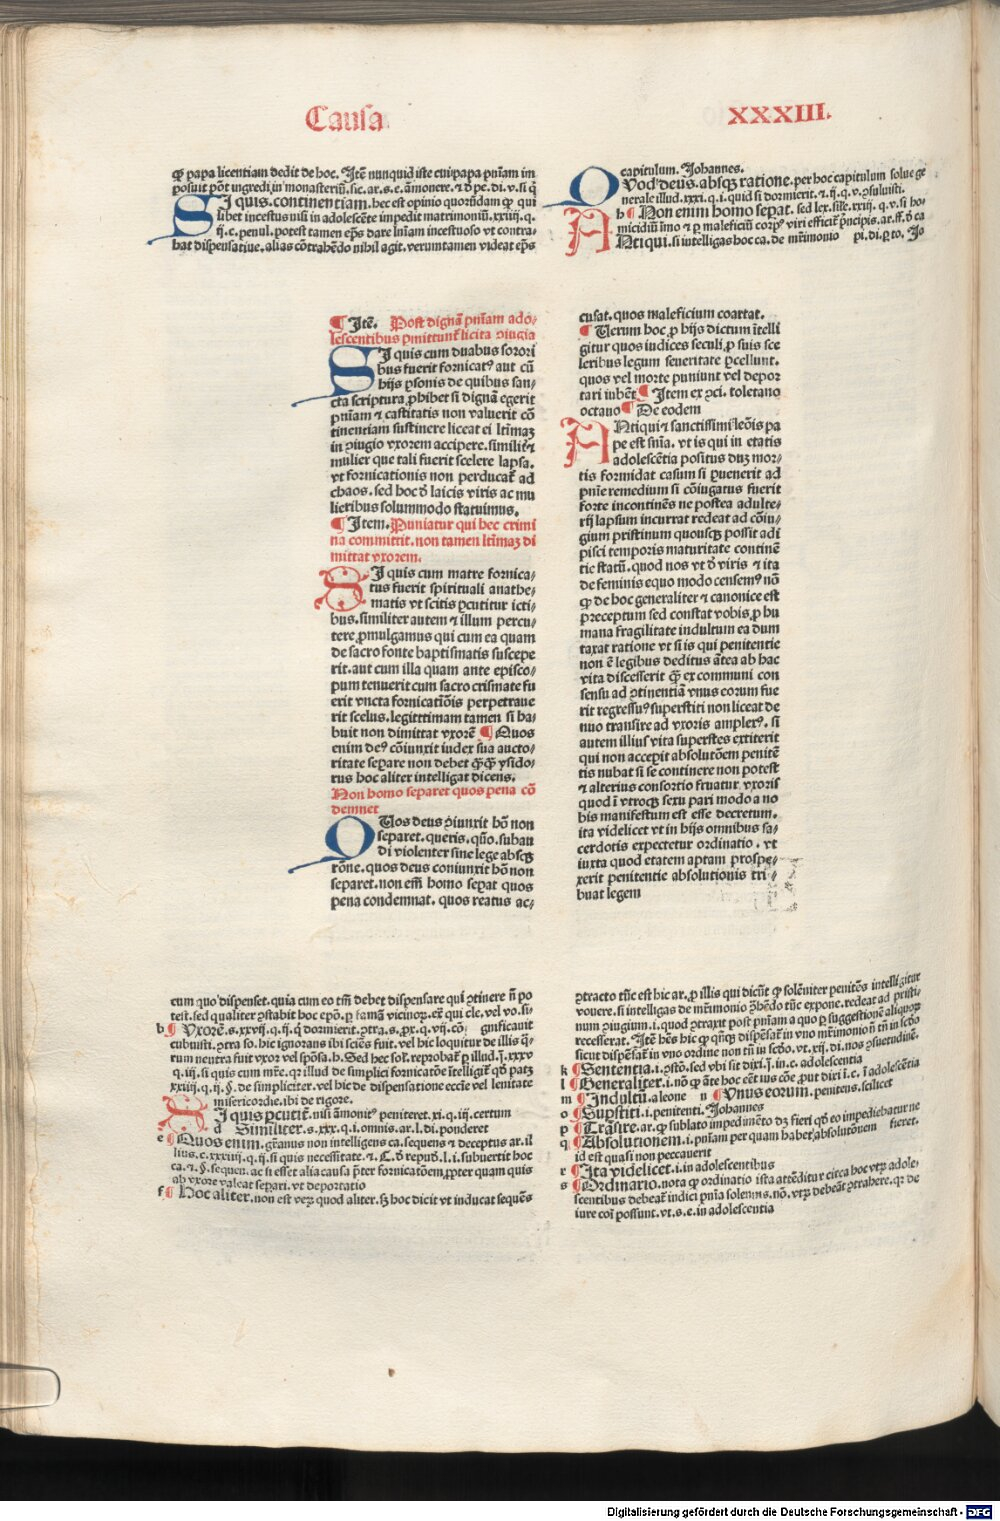 Causa
XXXIII.
ꝙ papa licentiam dedit de hoc. Itē nunquid iste cui papa pn̄iam im
posuit pōt ingredi in monasteriū. sic. ar. s. e. āmonere. ⁊ đ pe. di. v. si q̄
SI quis. continentiam. hec est opinio quorūdam ꝙ qui
libet incestus nisi in adolescēte impedit matrimoniū. xxiiij. q.
ij. c. penul. potest tamen ep̄s dare ln̄iam incestuoso vt contra⸗
hat dispensatiue. alias cōtrahēdo nihil agit. verumtamen videat ep̄s
capitulum. Johannes.
QVod deus. absqꝫ ratione. per hoc capitulum solue ge
nerale illud. xxxi. q. i. quid si dormierit. ⁊. ij. q. v. ꝯsuluisti.
b ¶ Non enim homo sepat. sed lex. sile. xxij. q. v. si ho⸗
micidiū īmo ⁊ ꝑ maleficiū corpꝰ viri efficit̄ p̄ncipis. ar. ff. đ ca
ANtiqui. si intelligas hoc ca. de mr̄imonio pi. di. ꝑ to. Jo
¶ Itē. Post dignā pn̄iam ado⸗
lescentibus ꝑmittunt̄ licita ꝯiugia
SI quis cum duabus sorori
bus fuerit fornicatꝰ aut cū
hijs ꝑsonis de quibus san⸗
cta scriptura ꝓhibet si dignā egerit
pn̄iam ⁊ castitatis non valuerit cō
tinentiam sustinere liceat ei lr̄imaꝫ
in ꝯiugio vxorem accipere. similit̄ ⁊
mulier que tali fuerit scelere lapsa.
vt fornicationis non perducat̄ ad
chaos. sed hoc đ laicis viris ac mu
lieribus solummodo statuimus.
¶ Item. Puniatur qui hec crimi
na committit. non tamen lr̄imaꝫ di
mittat vxorem.
SI quis cum matre fornica⸗
tus fuerit spirituali anathe⸗
matis vt scitis ꝑcutitur icti⸗
bus. similiter autem ⁊ illum percu⸗
tere ꝓmulgamus qui cum ea quam
de sacro fonte baptismatis suscepe
rit. aut cum illa quam ante episco⸗
pum tenuerit cum sacro crismate fu
erit vncta fornicatiōis perpetraue
rit scelus. legittimam tamen si ha⸗
buit non dimittat vxorē ¶ Quos
enim deꝰ cōiunxit iudex sua aucto⸗
ritate seꝑare non debet ꝙ̄ꝙ̄ ysido⸗
rus hoc aliter intelligat dicens.
Non homo separet quos pena cō
demnet
QVos deus ꝯiunxit hō non
separet. queris. qn̄o. subau
di violenter sine lege absqꝫ
rōne. quos deus coniunxit hō non
separet. non em̄ homo seꝑat quos
pena condemnat. quos reatus ac⸗
cusat. quos maleficium coartat.
¶ Verum hoc ꝓ hijs dictum ītelli
gitur quos iudices seculi ꝓ suis sce
leribus legum seueritate ꝑcellunt.
quos vel morte puniunt vel depor
tari iubēt ¶ Item ex ꝯci. toletano
octauo ¶ De eodem
ANtiqui ⁊ sanctissimi leōis pa
pe est sn̄ia. vt is qui in etatis
adolescētia positus duꝫ mor⸗
tis formidat casum si ꝑuenerit ad
pn̄ie remedium si cōiugatus fuerit
forte incontinēs ne postea adulte⸗
rij lapsum incurrat redeat ad cōiu⸗
gium pristinum quousqꝫ possit adi
pisci temporis maturitate continē
tie statū. quod nos vt đ viris ⁊ ita
de feminis equo modo censemꝰ nō
ꝙ de hoc generaliter ⁊ canonice est
p̄ceptum sed constat vobis ꝓ hu
mana fragilitate indultum ea dum
taxat ratione vt si is qui penitentie
non ē legibus deditus ātea ab hac
vita discesserit ꝙ̄ ex communi con
sensu ad ꝯtinentiā vnus eorum fue
rit regressuꝰ superstiti non liceat de
nuo transire ad vxoris amplexꝰ. si
autem illius vita superstes extiterit
qui non accepit absolutōem penitē
tis nubat si se continere non potest
⁊ alterius consortio fruatur vxoris
quod ī vtroqꝫ sexu pari modo a no
bis manifestum est esse decretum.
ita videlicet vt in hijs omnibus sa⸗
cerdotis expectetur ordinatio. vt
iuxta quod etatem aptam prospe⸗
xerit penitentie absolutionis tri⸗
buat legem
cum quo dispenset. quia cum eo tm̄ debet dispensare qui ꝯtinere n̄ po
test. sed qualiter ꝯstabit hoc ep̄o. ꝑ famā vicinoꝝ. ex̄ qui cle. vel vo. si⸗
b ¶ Vxorē. s. xxvij. q. ij. q̄ dormierit. ꝯtra. s. ꝓx. q. vij. cō gnificauit
cubuisti. ꝯtra so. hic ignorans ibi sciēs fuit. vel hic loquitur de illis q̄⸗
rum neutra fuit vxor vel spōsa. h. Sed hec sol. reprobat̄ ꝑ illud. j. xxxv
q. iij. si quis cum mr̄e. qꝛ illud de simplici fornicatōe ītelligit̄ qd̄ patꝫ
xxiiij. q. ij. §. de simpliciter. vel hic de dispensatione eccl̄e vel lenitate
misericordie. ibi de rigore.
SI quis ꝑcutit̄. nisi āmonitꝰ peniteret. xi. q. iij. certum
d Similiter. s. xxx. q. i. omnis. ar. l. di. ponderet
e ¶ Quos enim. gr̄anus non intelligens ca. sequens ⁊ deceptus ar. il
lius. c. xxxiij. q. ij. si quis necessitate. ⁊. C. đ repud. l. i. subuertit hoc
ca. ⁊. §. sequen. ac si esset alia causa p̄ter fornicatōem ꝓpter quam quis
ab vxore valeat seꝑari. vt deportatio
f ¶ Hoc aliter. non est veꝝ quod aliter. sꝫ hoc dicit vt inducat sequēs
ꝯtracto tūc est hic ar. ꝓ illis qui dicūt ꝙ solēniter penitēs intelligitur
vouere. si intelligas de mr̄imonio ꝯhēdo tūc expone. redeat ad pristi⸗
num ꝯiugium. i. quod ꝯtraxit post pn̄iam a quo ꝑ suggestionē aliquoꝝ
recesserat. Itē hēs hic ꝙ qn̄qꝫ dispēsat̄ in vno mr̄imonio n̄ tn̄ in scđo
sicut dispēsat̄ in vno ordine non tn̄ in scđo. vt. xij. di. nos ꝯsuetudinē.
k ¶ Sententia. i. ꝯstō. sed vbi sit dixi. j. in. c. adolescentia
l ¶ Generaliter. i. nō ꝙ āte hoc eēt ius cōe ꝓut dixi. i. c. ī adolescētia
m ¶ Indultū. a leone n ¶ Vnus eorum. penitens. scilicet
o ¶ Supstiti. i. penitenti. Johannes
p ¶ Trāsire. ar. ꝙ sublato impedimēto dꝫ fieri qd̄ eo impediebatur ne
q ¶ Absolutionem. i. pn̄iam per quam habet̄ absolutōnem fieret.
id est quasi non peccauerit
r ¶ Ita videlicet. i. in adolescentibus
s ¶ Ordinario. nota ꝙ ordinatio ista attēditur circa hoc vtꝝ adole⸗
scentibus debeat̄ indici pn̄ia solennis. nō. vtꝝ debeāt ꝯtrahere. qꝛ de
iure coī possunt. vt. s. e. in adolescentia
Digitalisierung gefördert durch die Deutsche Forschungsgemeinschaft - DFG